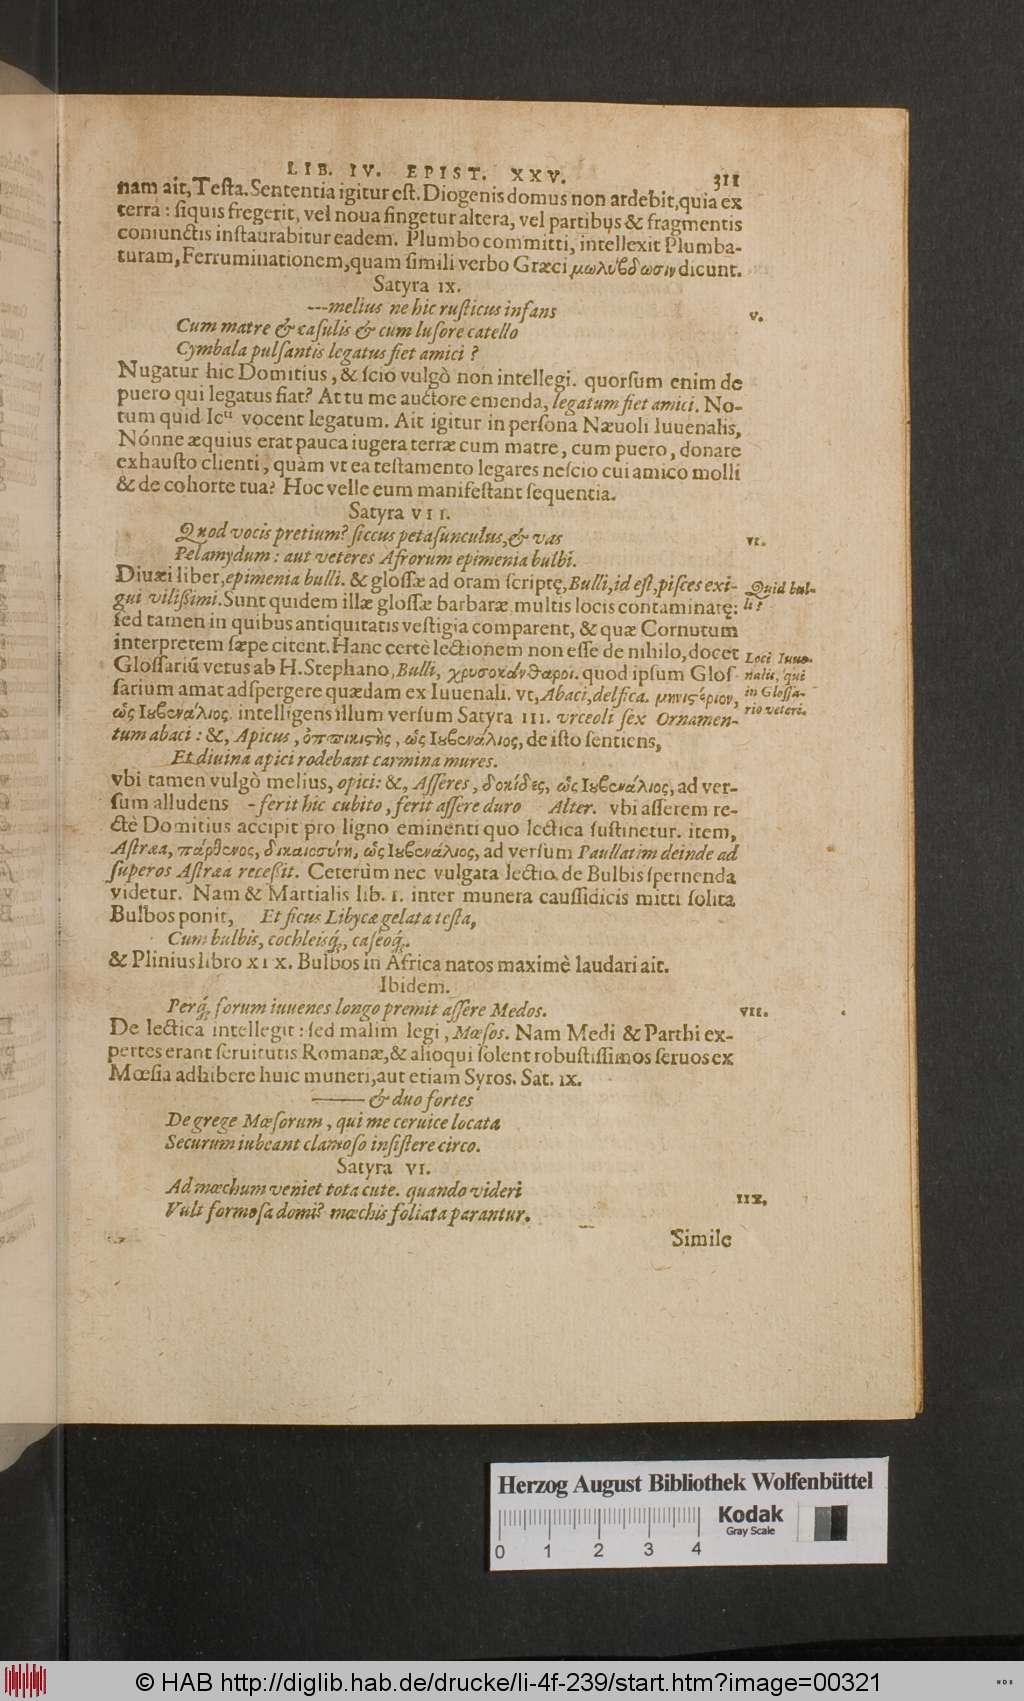 LIB. IV. EPIST. XXV. 311
nam ait, Testa. Sententia igitur est. Diogenis domus non ardebit, quia ex
terra: siquis fregerit, vel noua fingetur altera, vel partibus & fragmentis
coniunctis instaurabitur eadem. Plumbo committi, intellexit Plumba-
turam, Ferruminationem, quam simili verbo Græci μωλύβδωσιν dicunt.
Satyra IX.
---melius ne hic rusticus infans
V.
Cum matre & casulis & cum lusore catello
Cymbala pulsantis legatus fiet amici?
Nugatur hic Domitius, & scio vulgò non intellegi. quorsum enim de
puero qui legatus fiat? At tu me auctore emenda, legatum fiet amici. No-
tum quid Icti vocent legatum. Ait igitur in persona Næuoli Iuuenalis,
Nónne æquius erat pauca iugera terræ cum matre, cum puero, donare
exhausto clienti, quàm vt ea testamento legares nescio cui amico molli
& de cohorte tua? Hoc velle eum manifestant sequentia.
Satyra VII.
Quod vocis pretium? siccus petasunculus, & vas
VI.
Pelamydum: aut veteres Afrorum epimenia bulbi.
Diuæi liber, epimenia bulli. & glossæ ad oram scriptę, Bulli, id est, pisces exi-
Quid bul-
gui vilissimi. Sunt quidem illæ glossæ barbaræ multis locis contaminatę:
li?
sed tamen in quibus antiquitatis vestigia comparent, & quæ Cornutum
interpretem sæpe citent. Hanc certè lectionem non esse de nihilo, docet
Loci Iuue-
Glossariū vetus ab H. Stephano, Bulli, χρυσοκάνθαροι. quod ipsum Glos-
nalis, qui
sarium amat adspergere quædam ex Iuuenali. vt, Abaci, delfica. μηνιστέριον,
in Glossa-
ὡς Ιȣβενάλιος. intelligens illum versum Satyra III. vrceoli sex Ornamen-
rio veteri.
tum abaci: &, Apicus, ὀππικιστὴς, ὡς Ιȣβενάλιος, de isto sentiens,
Et diuina apici rodebant carmina mures.
vbi tamen vulgò melius, opici: &, Asseres, δοκίδες, ὡς Ιȣβενάλιος, ad ver-
sum alludens - ferit hic cubito, ferit assere duro Alter. vbi asserem re-
ctè Domitius accipit pro ligno eminenti quo lectica sustinetur. item,
Astræa, πάρθενος, δικαιοσύνη, ὡς Ιȣβενάλιος, ad versum Paullatim deinde ad
superos Astræa recessit. Ceterùm nec vulgata lectio de Bulbis spernenda
videtur. Nam & Martialis lib. I. inter munera caussidicis mitti solita
Bulbos ponit, Et ficus Libycæ gelata testa,
Cum bulbis, cochleisq́;, caseoq́;.
& Plinius libro XIX. Bulbos in Africa natos maximè laudari ait.
Ibidem.
Perq́; forum iuuenes longo premit assere Medos.
VII.
De lectica intellegit: sed malim legi, Mœsos. Nam Medi & Parthi ex-
pertes erant seruitutis Romanæ, & alioqui solent robustissimos seruos ex
Mœsia adhibere huic muneri, aut etiam Syros. Sat. IX.
--- & duo fortes
De grege Mœsorum, qui me ceruice locata
Securum iubeant clamoso insistere circo.
Satyra VI.
Ad mœchum veniet tota cute. quando videri
IIX.
Vult formosa domi? mœchis foliata parantur.
Simile
Herzog August Bibliothek Wolfenbüttel
Kodak
Gray Scale
0 1 2 3 4
© HAB http://diglib.hab.de/drucke/li-4f-239/start.htm?image=00321